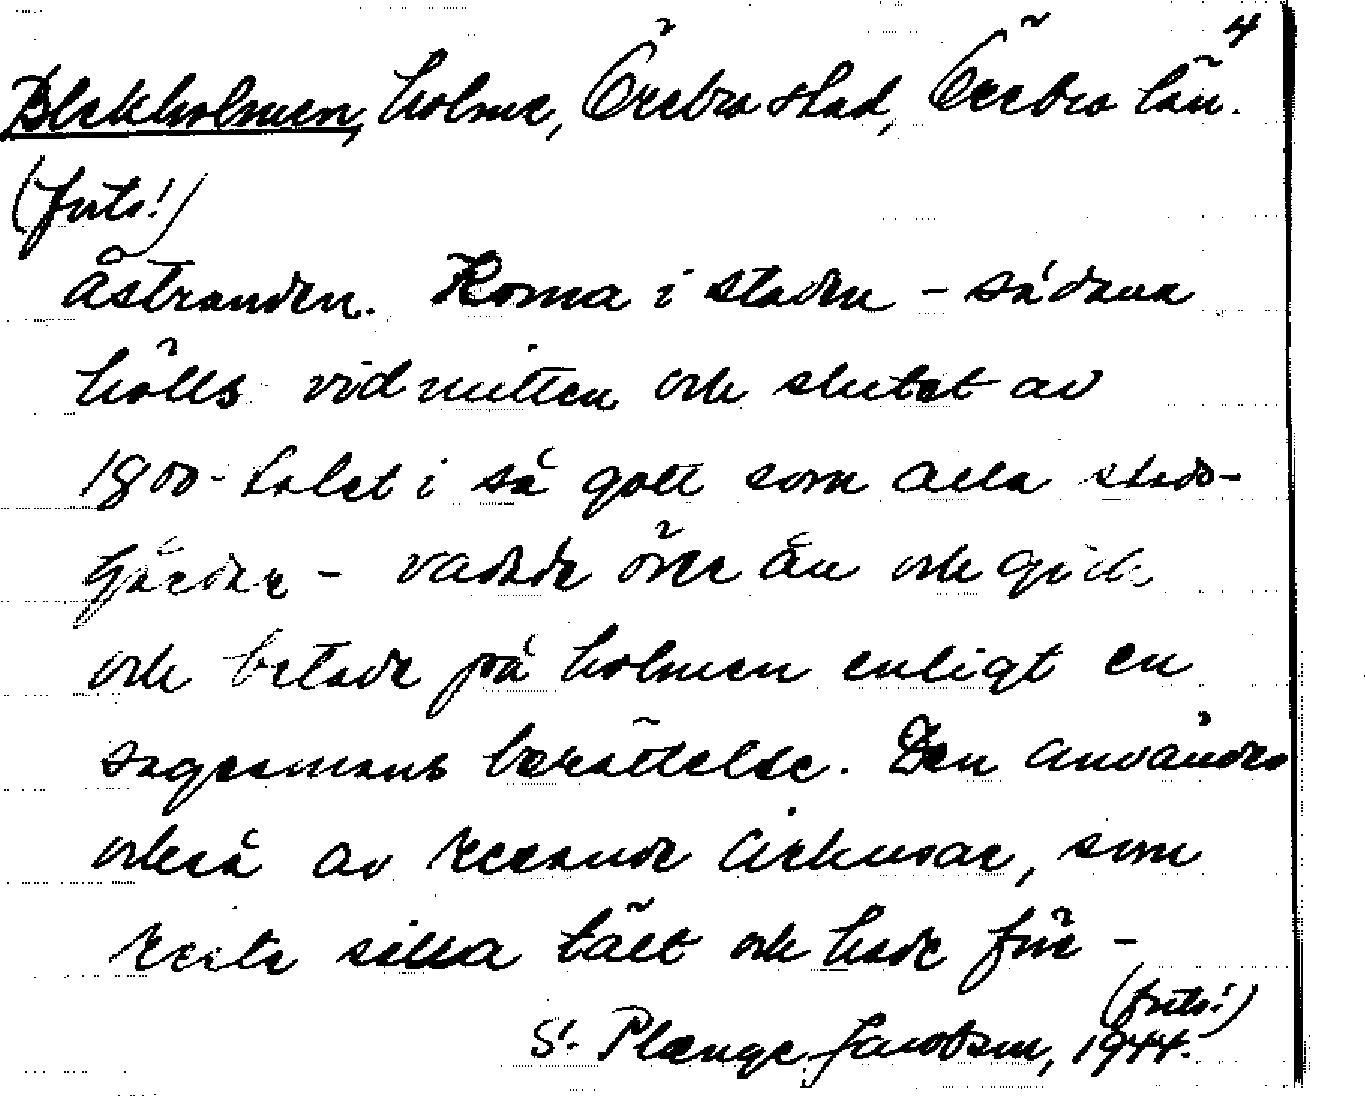 4
Blekholmen, holme, Örebro stad, Örebro län.
(forts!)
åstranden. Korna i staden - sådana
hölls vid mitten och slutet av
1800-talet i så gott som alla stads-
gårdar - vadade över ån och gick
och betade på holmen enligt en
sagesmans berättelse. Den användes
också av resande cirkusar, som
reste sina tält och hade före-
(forts!)
S. Plænge Jacobson, 1944.